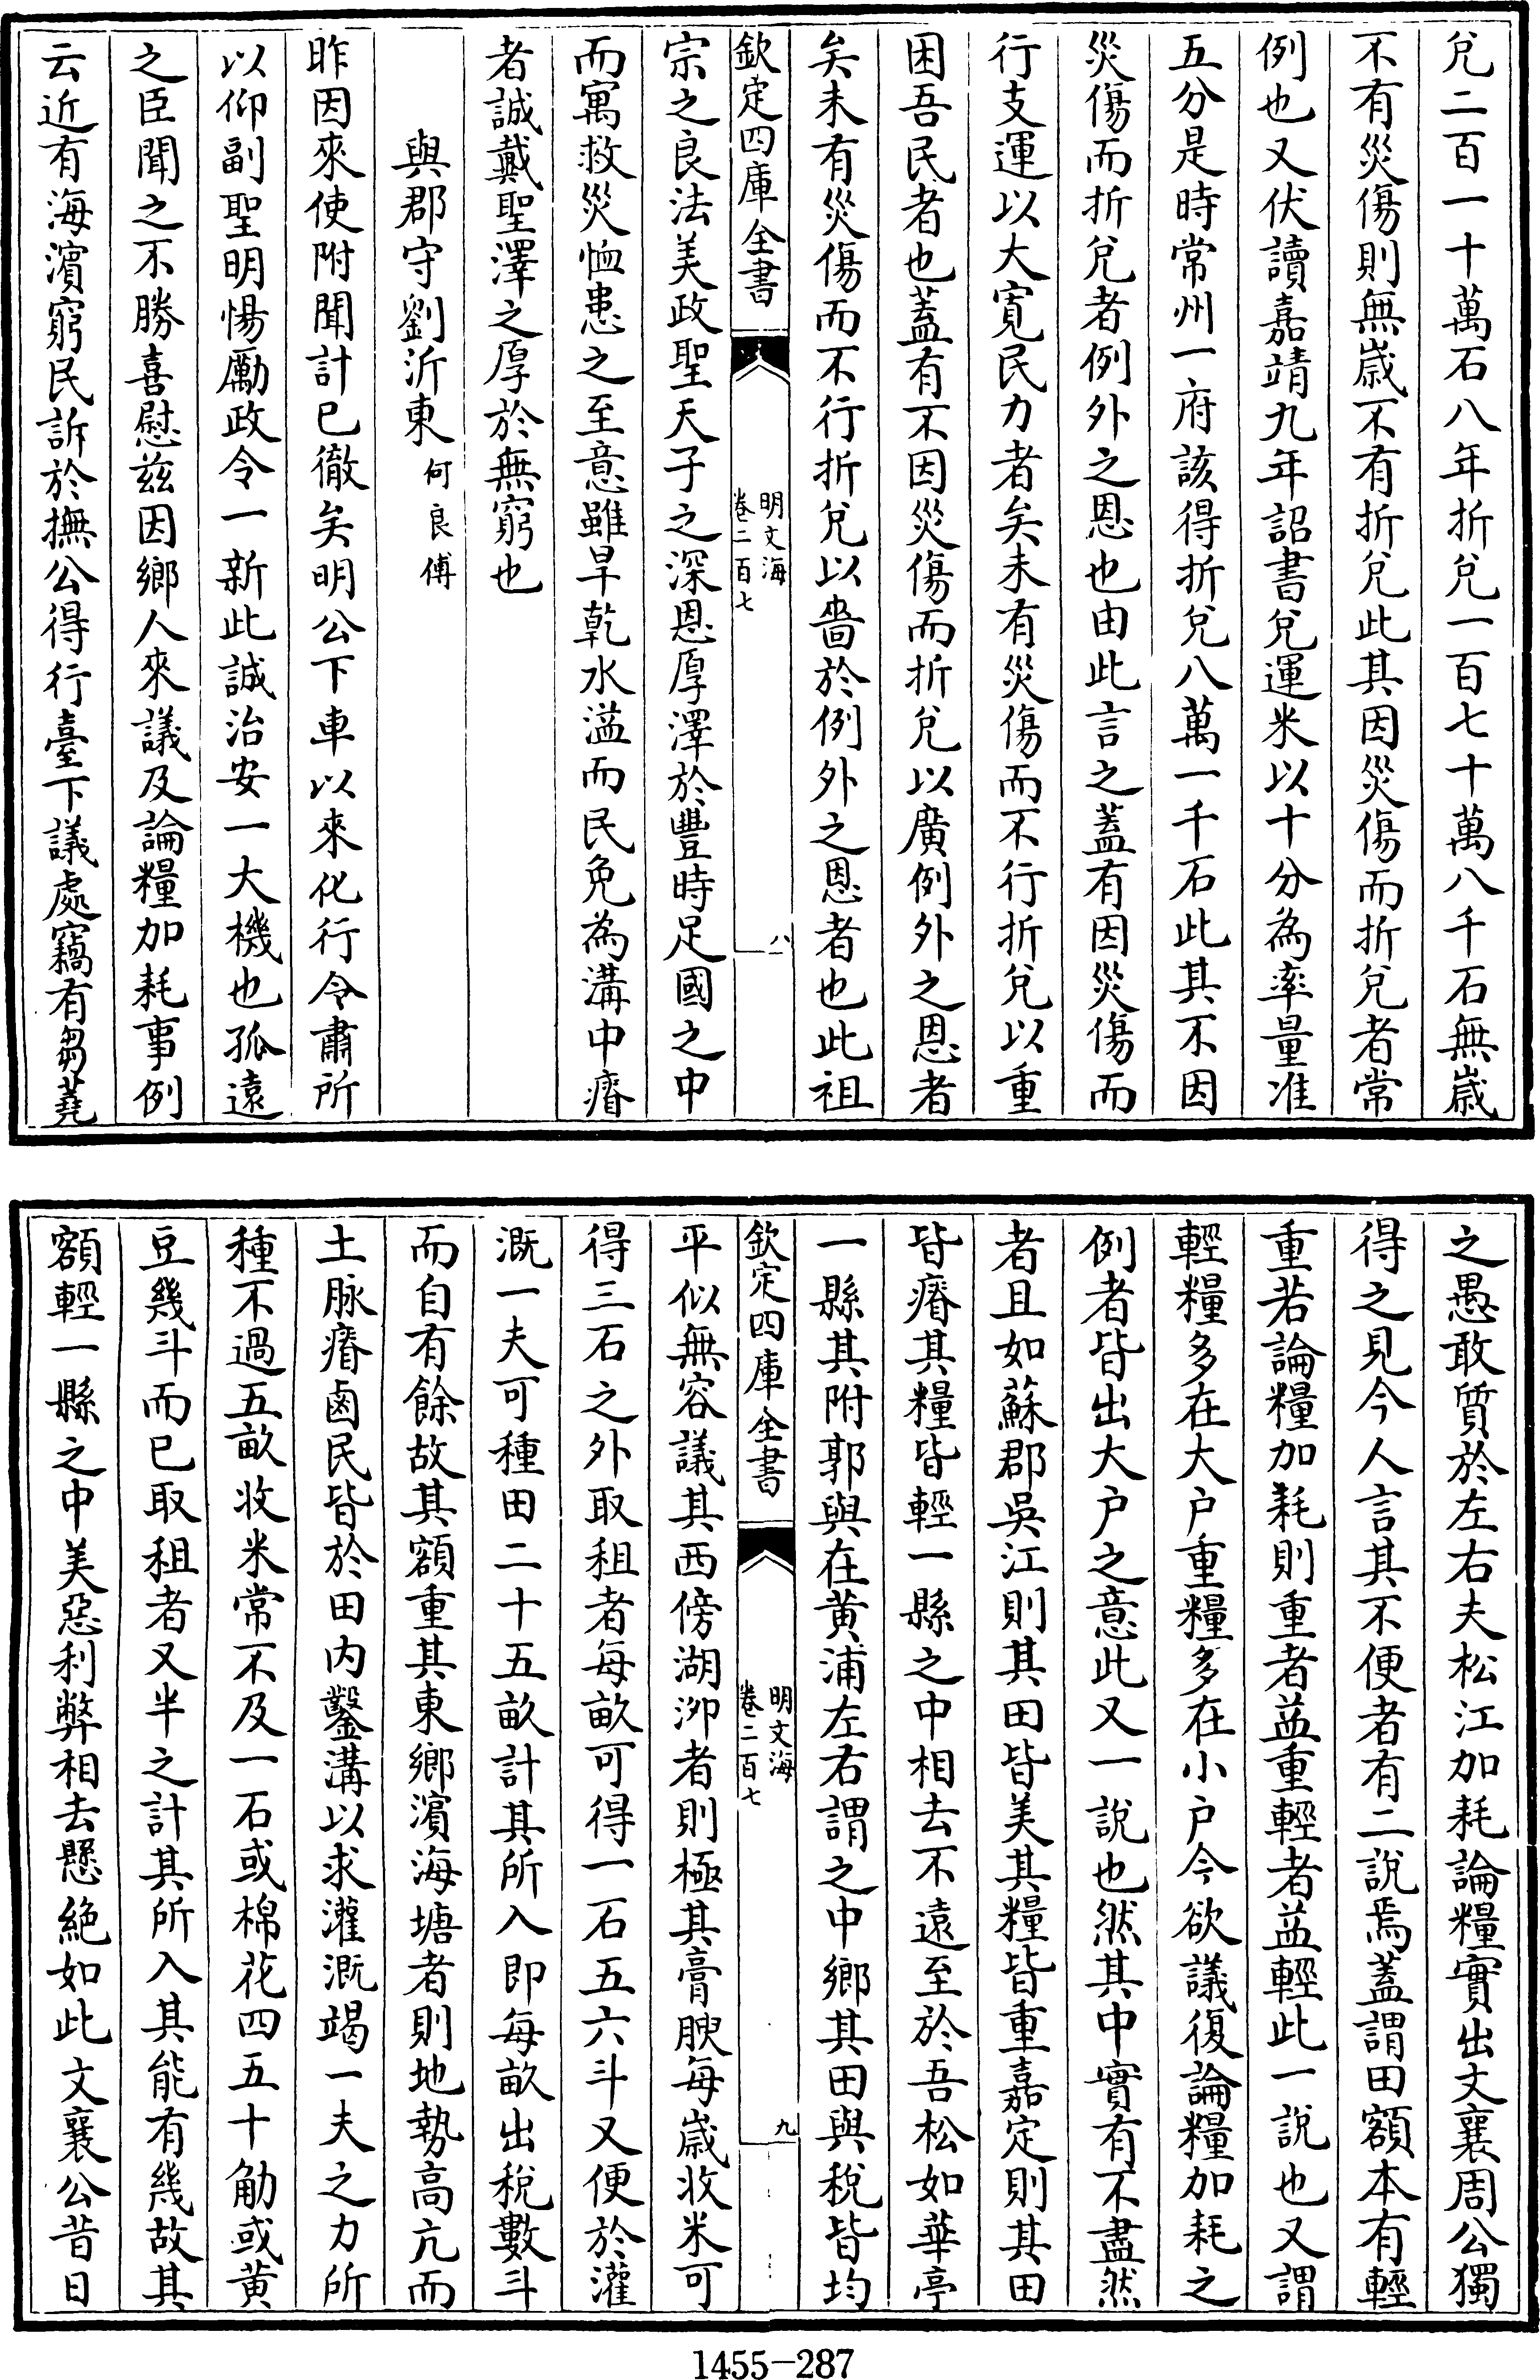 兌二百一十萬石八年折兌一百七十萬八千石無歲
不有災傷則無歲不有折兌此其因災傷而折兌者常
例也又伏讀嘉靖九年詔書兌運米以十分為率量准
五分是時常州一府該得折兌八萬一千石此其不因
災傷而折兌者例外之恩也由此言之蓋有因災傷而
行支運以大寬民力者矣未有災傷而不行折兌以重
困吾民者也蓋有不因災傷而折兌以廣例外之恩者
矣未有災傷而不行折兌以嗇於例外之恩者也此祖
欽定四庫全書
明文海
卷二百七
八
宗之良法美政聖天子之深恩厚澤於豐時足國之中
而寓救災恤患之至意雖旱乾水溢而民免為溝中瘠
者誠戴聖澤之厚於無窮也
與郡守劉沂東何良傅
昨因來使附聞計已徹矣明公下車以來化行令肅所
以仰副聖明惕勵政令一新此誠治安一大機也孤遠
之臣聞之不勝喜慰茲因鄉人來議及論糧加耗事例
云近有海濱窮民訴於撫公得行臺下議處竊有芻蕘
之愚敢質於左右夫松江加耗論糧實出文襄周公獨
得之見今人言其不便者有二說焉蓋謂田額本有輕
重若論糧加耗則重者益重輕者益輕此一說也又謂
輕糧多在大户重糧多在小户今欲議復論糧加耗之
例者皆出大户之意此又一說也然其中實有不盡然
者且如蘇郡吳江則其田皆美其糧皆重嘉定則其田
皆瘠其糧皆輕一縣之中相去不遠至於吾松如華亭
一縣其附郭與在黄浦左右謂之中鄉其田與稅皆均
欽定四庫全書
明文海
卷二百七
九
平似無容議其西傍湖泖者則極其膏腴每歲收米可
得三石之外取租者每畝可得一石五六斗又便於灌
溉一夫可種田二十五畝計其所入即每畝出稅數斗
而自有餘故其額重其東鄉濱海塘者則地勢高亢而
土脉瘠鹵民皆於田内鑿溝以求灌溉竭一夫之力所
種不過五畝收米常不及一石或棉花四五十觔或黄
豆幾斗而已取租者又半之計其所入其能有幾故其
額輕一縣之中美惡利弊相去懸絶如此文襄公昔日
1455-287